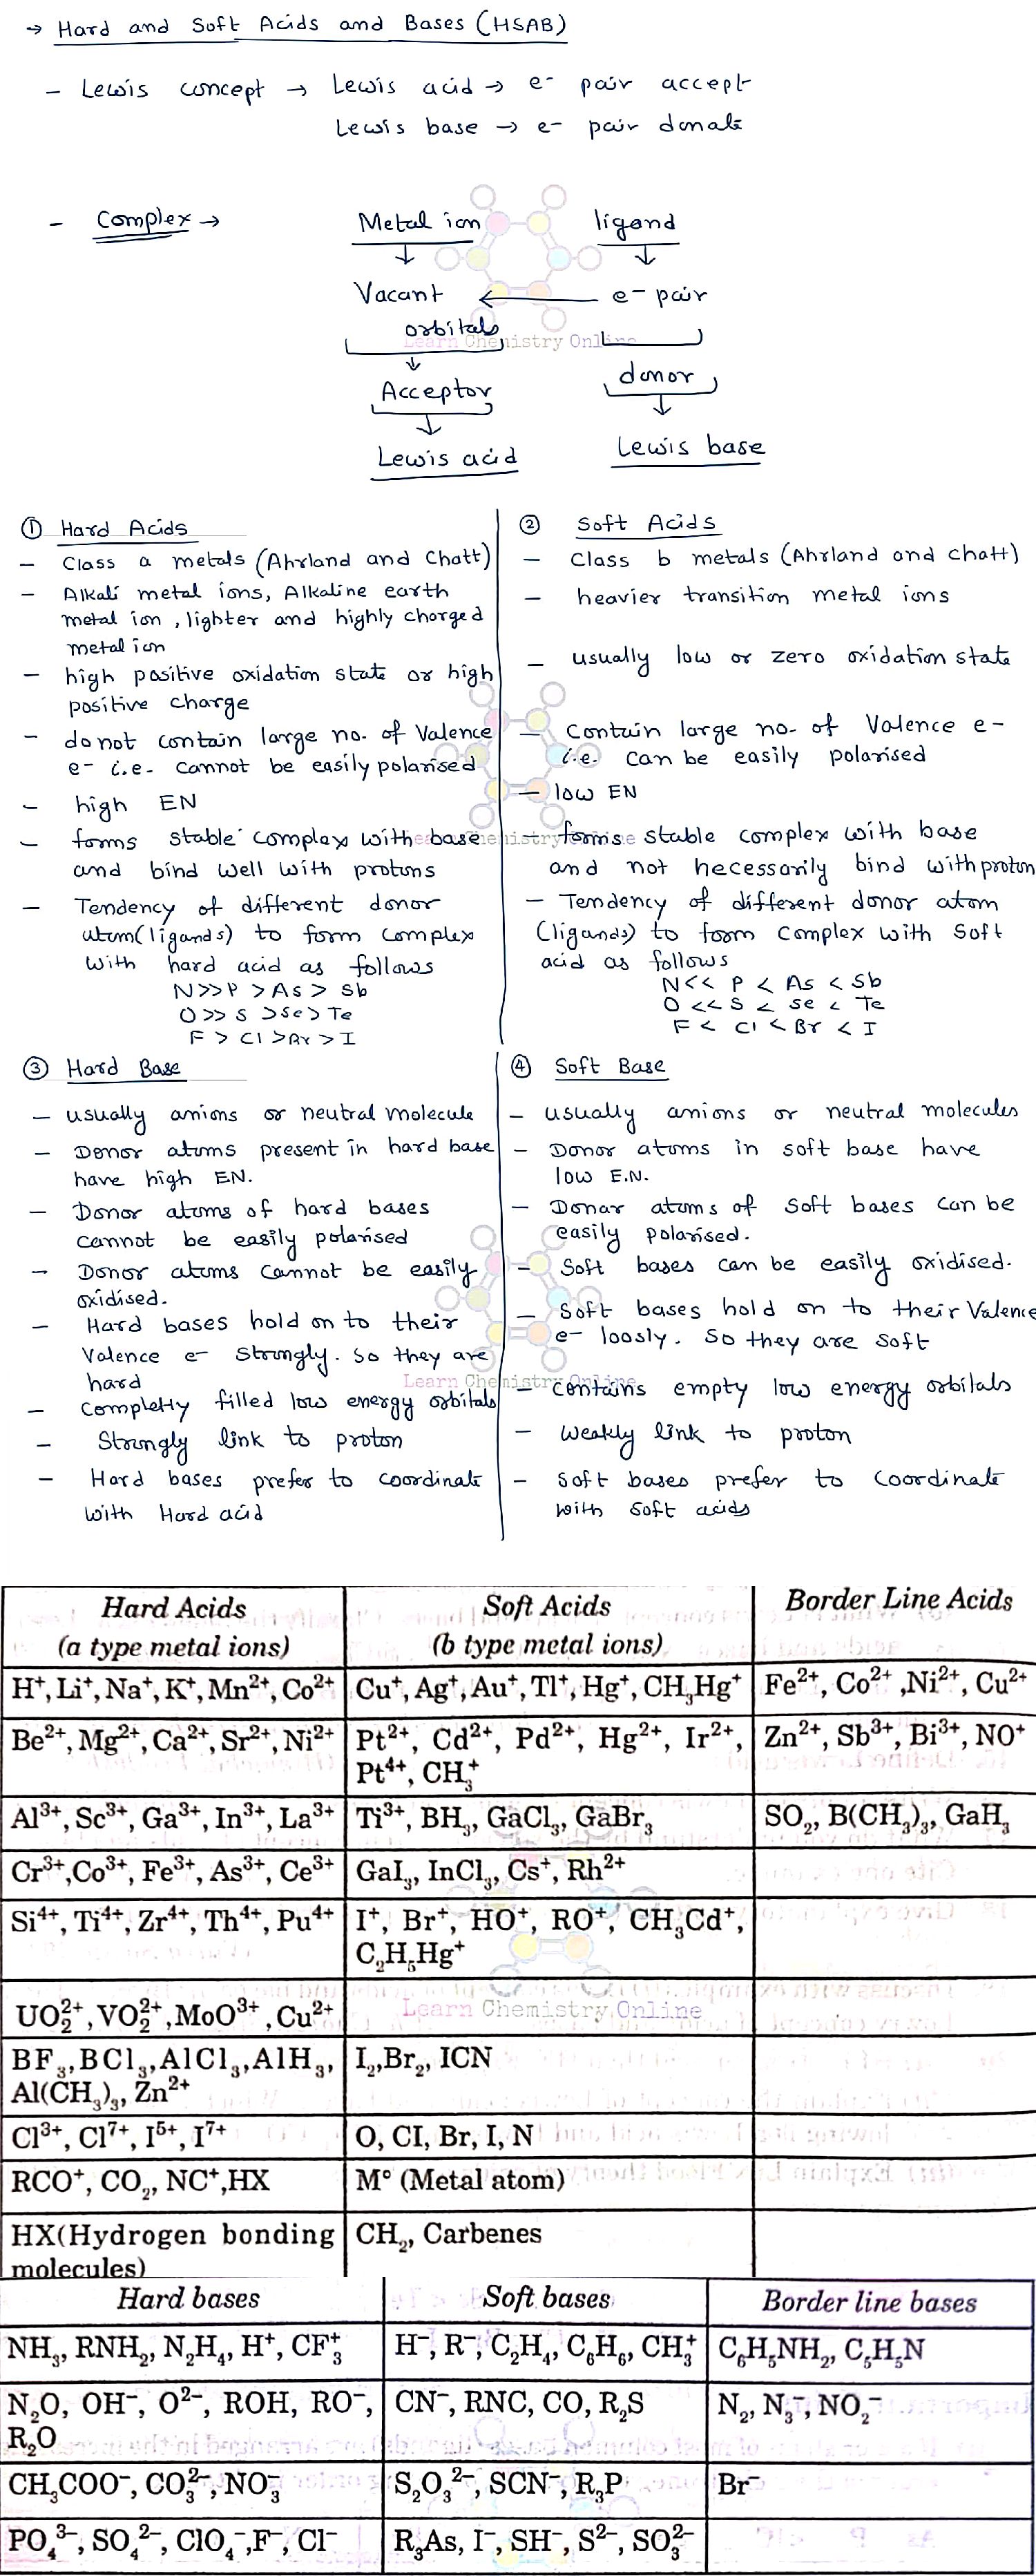 → Hard and Soft Acids and Bases (HSAB)
- Lewis concept → Lewis acid → e- pair accept
Lewis base → e- pair donate
- Complex →
Metal ion ligand
↓ ↓
Vacant ← e- pair
orbitals
Learn Chemistry Online
↓
Acceptor donor
↓ ↓
Lewis acid Lewis base
① Hard Acids
- Class a metals (Ahrland and Chatt)
- Alkali metal ions, Alkaline earth
metal ion, lighter and highly charged
metal ion
- high positive oxidation state or high
positive charge
- do not contain large no. of Valence
e- i.e. cannot be easily polarised
- high EN
- forms stable complex with base
and bind well with protons
- Tendency of different donor
atom(ligands) to form complex
with hard acid as follows
N >> P > As > Sb
O >> S > Se > Te
F > Cl > Br > I
② Soft Acids
- Class b metals (Ahrland and chatt)
- heavier transition metal ions
- usually low or zero oxidation state
- Contain large no. of Valence e-
i.e. can be easily polarised
- low EN
Learn Chemistry Online
- forms stable complex with base
and not necessarily bind with proton
- Tendency of different donor atom
(ligands) to form complex with soft
acid as follows
N << P < As < Sb
O << S < Se < Te
F < Cl < Br < I
③ Hard Base
- usually anions or neutral molecule
- Donor atoms present in hard base
have high EN.
- Donor atoms of hard bases
cannot be easily polarised
- Donor atoms cannot be easily
oxidised.
- Hard bases hold on to their
Valence e- strongly. So they are
hard
- Completly filled low energy orbitals
- Strongly link to proton
- Hard bases prefer to coordinate
with Hard acid
④ Soft Base
- usually anions or neutral molecules
- Donor atoms in soft base have
low E.N.
- Donar atoms of soft bases can be
easily polarised.
- Soft bases can be easily oxidised.
- Soft bases hold on to their Valence
e- loosly. So they are soft
Learn Chemistry Online
- contains empty low energy orbitals
- Weakly link to proton
- Soft bases prefer to coordinate
with soft acids
Hard Acids Soft Acids Border Line Acids
(a type metal ions) (b type metal ions)
H⁺, Li⁺, Na⁺, K⁺, Mn²⁺, Co²⁺ Cu⁺, Ag⁺, Au⁺, Tl⁺, Hg⁺, CH₃Hg⁺ Fe²⁺, Co²⁺, Ni²⁺, Cu²⁺
Be²⁺, Mg²⁺, Ca²⁺, Sr²⁺, Ni²⁺ Pt²⁺, Cd²⁺, Pd²⁺, Hg²⁺, Ir²⁺, Zn²⁺, Sb³⁺, Bi³⁺, NO⁺
Pt⁴⁺, CH₃⁺
Al³⁺, Sc³⁺, Ga³⁺, In³⁺, La³⁺ Ti³⁺, BH₃, GaCl₃, GaBr₃ SO₂, B(CH₃)₃, GaH₃
Cr³⁺, Co³⁺, Fe³⁺, As³⁺, Ce³⁺ GaI₃, InCl₃, Cs⁺, Rh²⁺
Si⁴⁺, Ti⁴⁺, Zr⁴⁺, Th⁴⁺, Pu⁴⁺ I⁺, Br⁺, HO⁺, RO⁺, CH₃Cd⁺,
C₂H₅Hg⁺
UO₂²⁺, VO₂²⁺, MoO³⁺, Cu²⁺ Learn Chemistry Online
BF₃, BCl₃, AlCl₃, AlH₃, I₂, Br₂, ICN
Al(CH₃)₃, Zn²⁺
Cl³⁺, Cl⁷⁺, I⁵⁺, I⁷⁺ O, CI, Br, I, N
RCO⁺, CO₂, NC⁺, HX M° (Metal atom)
HX(Hydrogen bonding CH₂, Carbenes
molecules)
Hard bases Soft bases Border line bases
NH₃, RNH₂, N₂H₄, H⁺, CF₃⁺ H⁻, R⁻, C₂H₄, C₆H₆, CH₃⁺ C₆H₅NH₂, C₅H₅N
N₂O, OH⁻, O²⁻, ROH, RO⁻, CN⁻, RNC, CO, R₂S N₂, N₃⁻, NO₂⁻
R₂O
CH₃COO⁻, CO₃²⁻, NO₃⁻ S₂O₃²⁻, SCN⁻, R₃P Br⁻
PO₄³⁻, SO₄²⁻, ClO₄⁻, F⁻, Cl⁻ R₃As, I⁻, SH⁻, S²⁻, SO₃²⁻